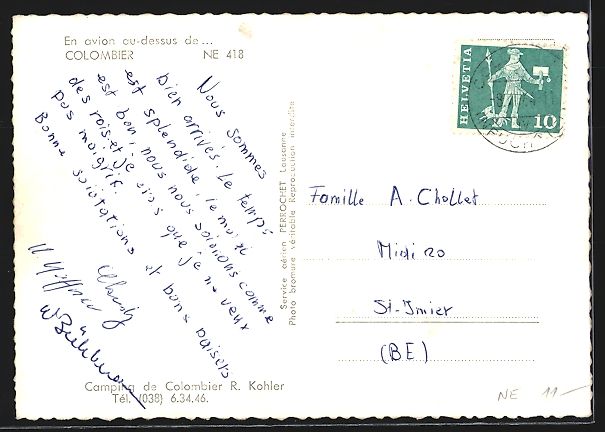 En avion au-dessus de...
COLOMBIER NE 418
Nous sommes
bien arrivés. Le temps
est splendide, le mazi
est bon, nous nous soignons comme
des rois et je crois que je ne veux
pas maigrir.
Bonne salutations et bons baisers
Camping de Colombier R. Kohler
Tél. (038) 6.34.46.
Service aérien PERROCHET Lausanne
Photo bromure véritable Reproduction interdite
HELVETIA
10
Famille A. Chollet
Midi 20
St-Imier
(BE)
NE 11.-